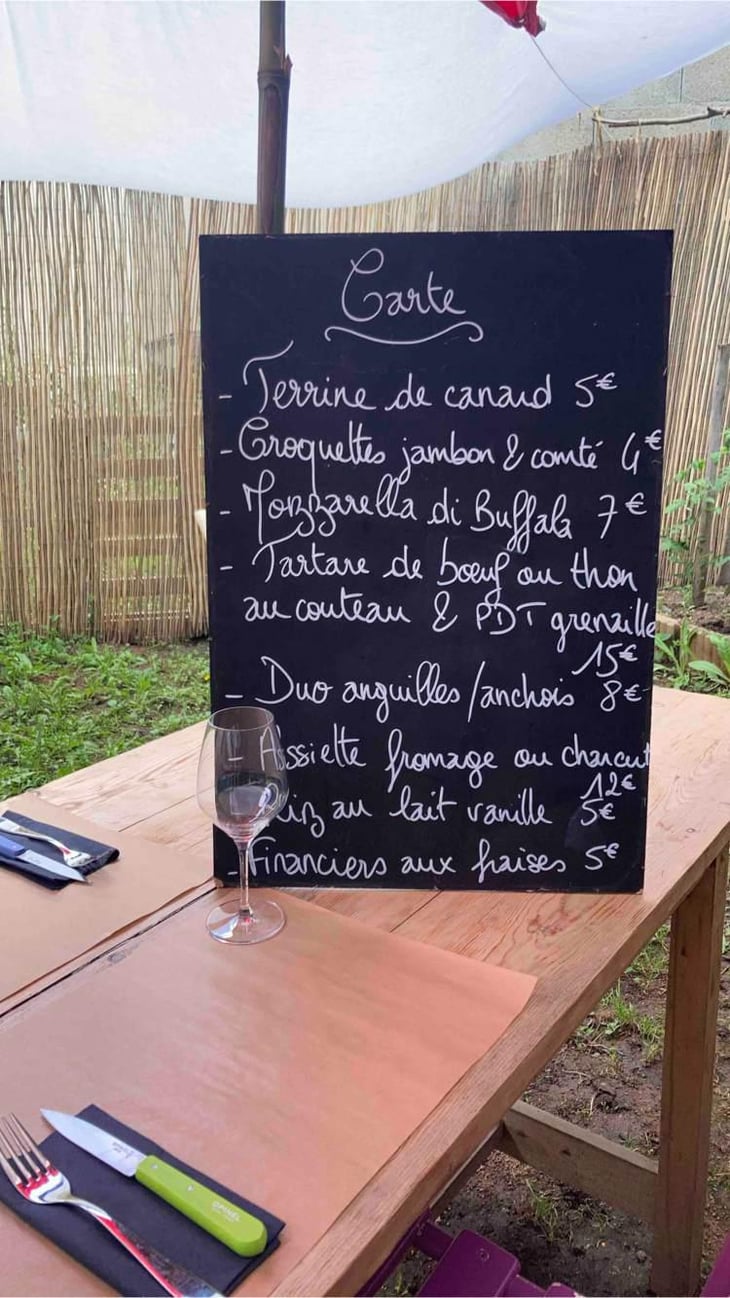 Carte
- Terrine de canard 5€
- Croquettes jambon & comté 4€
- Mozzarella di Buffala 7€
- Tartare de bœuf ou thon
au couteau & PDT grenaille
15€
- Duo anguilles/anchois 8€
- Assiette fromage ou charcut
12€
- Riz au lait vanille 5€
- Financiers aux fraises 5€
OPINEL